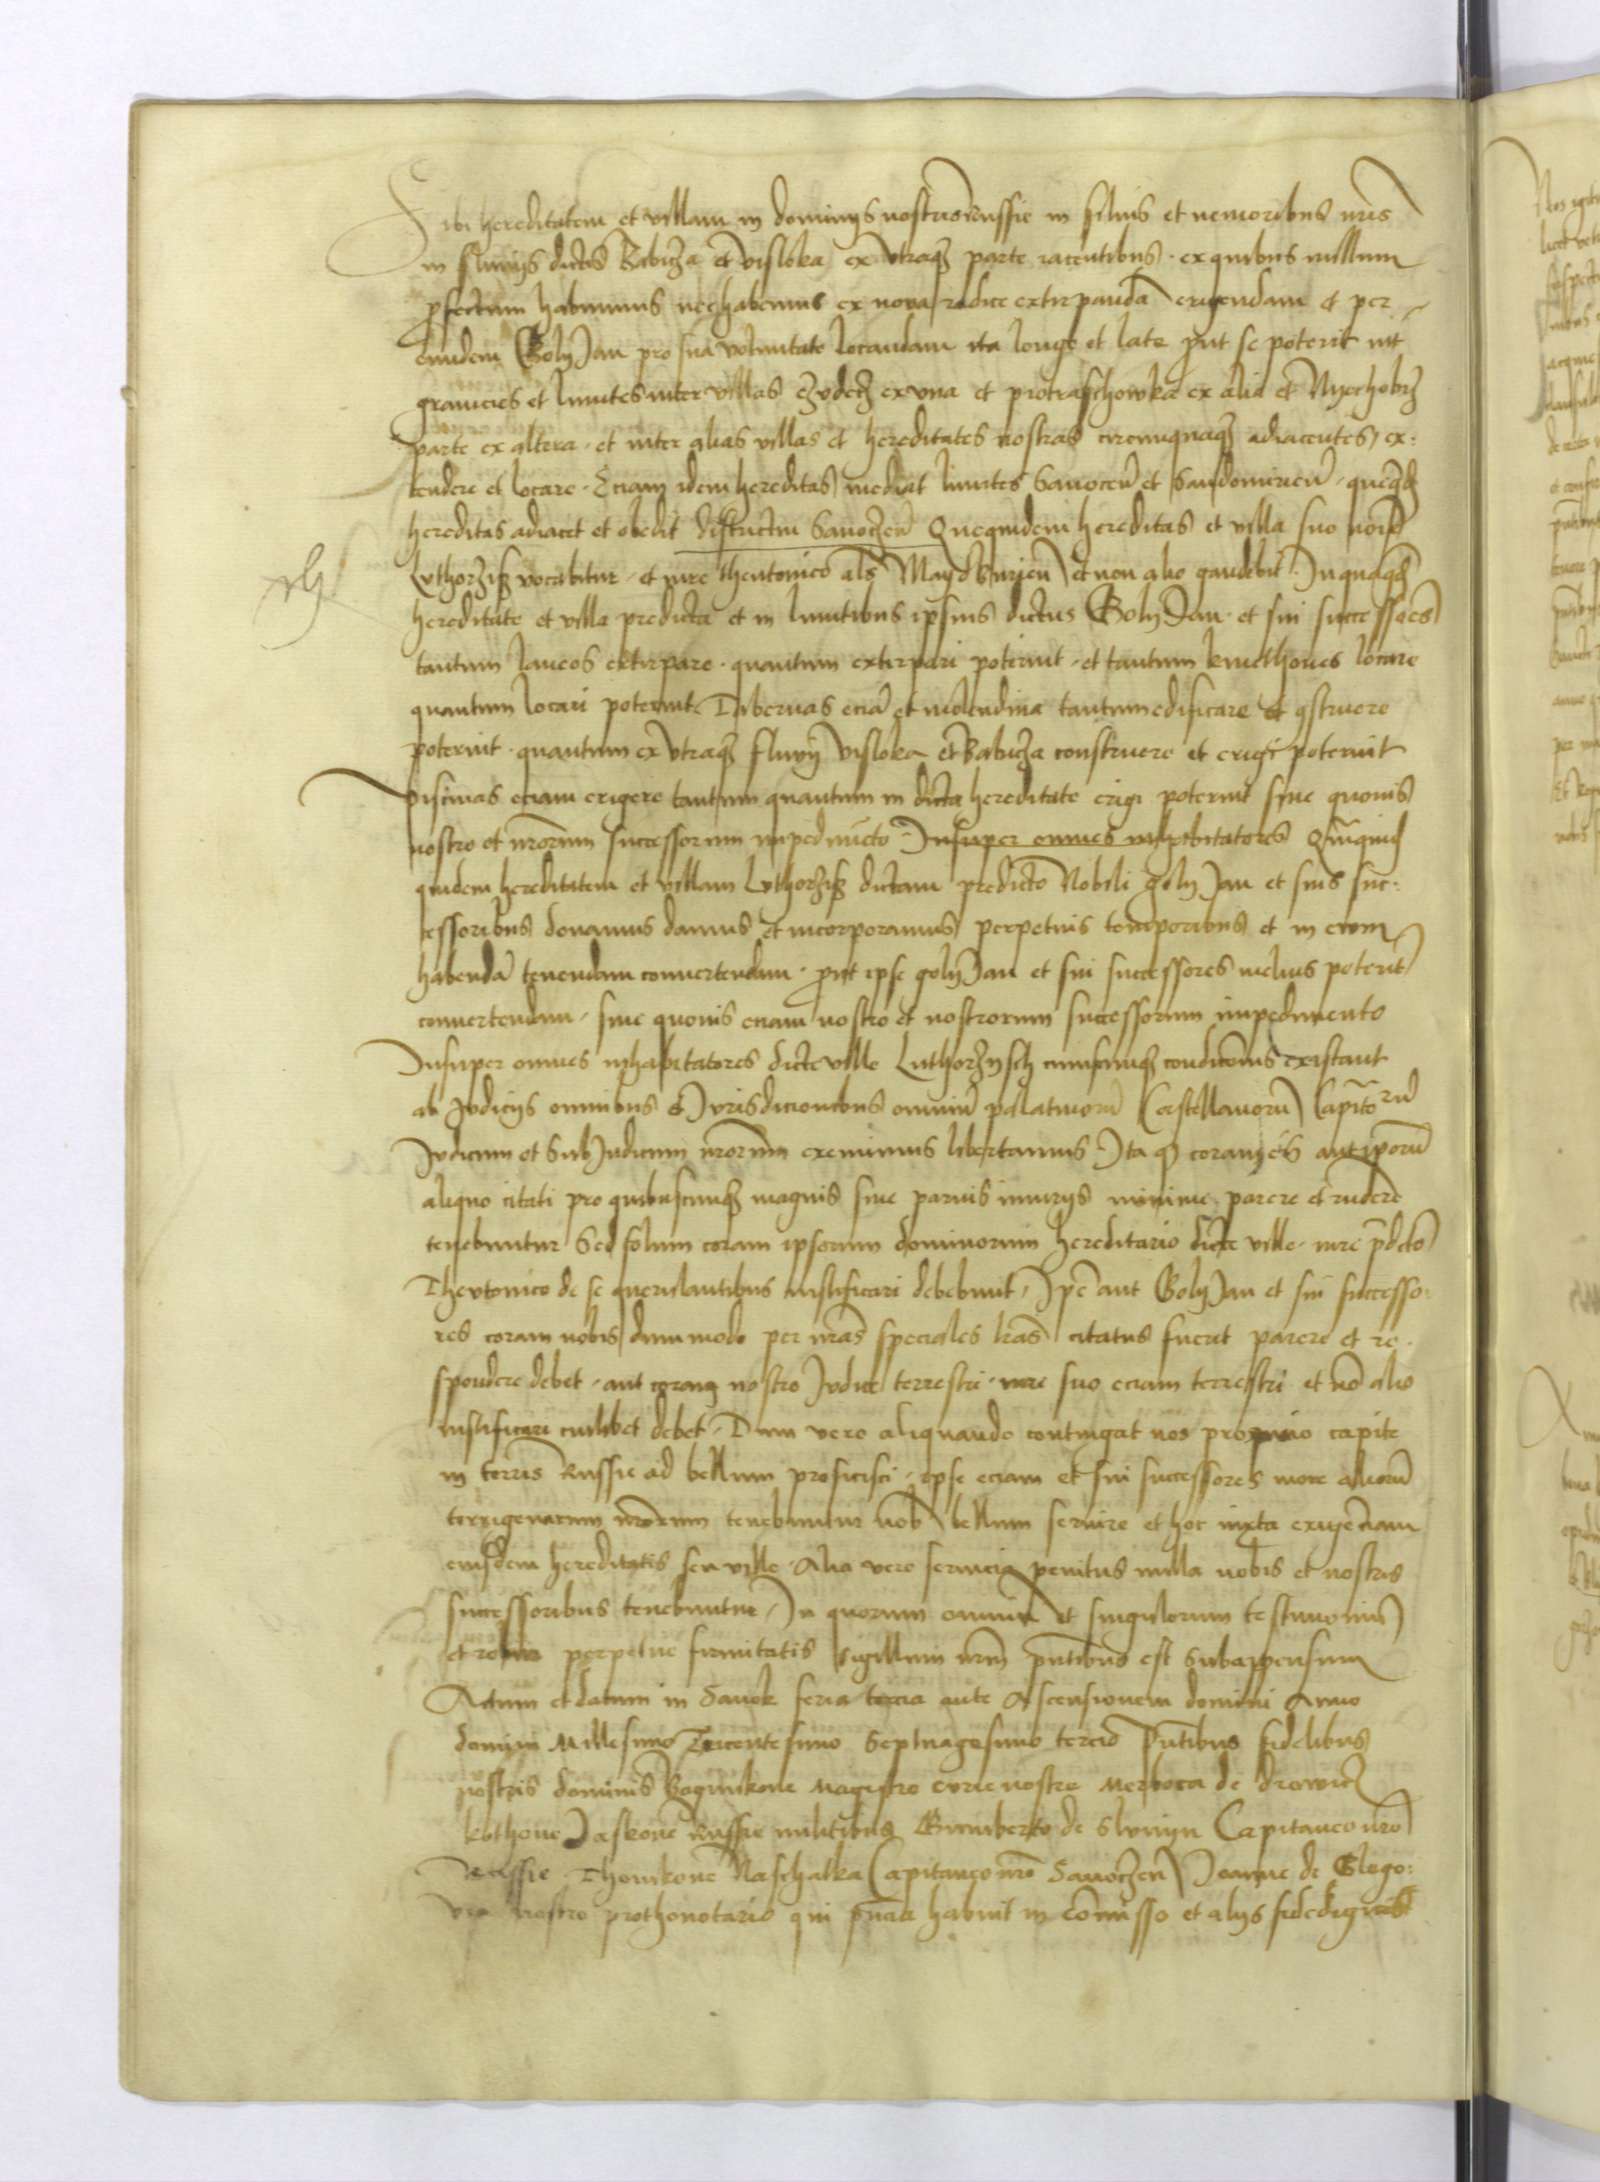 Sibi hereditatem et villam in dominiis nostris Russie in silvis et nemoribus nris
in fluviis dictis Babicza et visloka ex utraqz parte iacentibus . ex quibus nullum
pfectum habuimus nec habemus ex nova radice extirpandā erigendam et per
eundem Goly Jan pro sua voluntate locandam ita longe et late put se poterit int
granicies et limites inter villas czudecz ex una et protraschowka ex alia et Nyechobrz
parte ex altera . et inter alias villas et hereditates nostras circumquaqz adiacentes, ex:
tendere et locare . Eciam idem hereditas mediat limites Sanocen̄ et Sandomirien̄ . que qd̄
hereditas adiacet et obedit districtui Sanoczen̄ Que quidem hereditas et villa suo noīe
Luthorzisz vocabitur . et iure theutonico als Maydburien̄ et non alio gaudebit . In qua qd̄
hereditate et villa predicta et in limitibus ipsius dictus Goly Jan . et sui successoēs
tantum laneos extirpare . quantum extirpari poterint . et tantum kmethones locare
quantum locari poterint Tabernas eciā et molendina tantum edificare et 9struere
poterint . quantum ex utraqz fluvii visloka et Babicza construere et erigi poterint
piscinas eciam erigere tantum quantum in dicta hereditate erigi poterint sine quovis
nostro et nrorum successorum impedimēto . Insuper omnes inhabitatores
quidem hereditatem et villam Luthorzisz dictam predicto Nobili goly Jan et suis suc:
cessoribus donamus damus et incorporamus perpetuis temporibus et in evum
habendā tenendam convertendam . put ipse goly Jan et sui successores melius poterit
convertendum . sine quovis eciam nostro et nostrorum successorum impedimento
Insuper omnes inhabitatores dicte ville Luthorzysch cuiuscumqz condicōnis existant
ab Judiciis omnibus et Jurisdicionibus omniū palatinorū Castellanorū Capitaneorū
Judicum et SubJudicum nrorum eximimus libertamus . Ita qz coram eis aut ipsorū
aliquo citati pro quibuscumqz magnis sive parvis iniuriis minime parere et rndere
tenebuntur Sed solum coram ipsorum dominorum hereditario dicte ville . iure pdcto
Theutonico de se querulantibus iustificari debebunt . Ipe aut Goly Jan et sui successo:
res coram nobis dummodo per nras speciales lras citatus fuerit parere et re.
spondere debet . aut coram nostro Judice terrestri . iure suo eciam terrestri et nō alio
iustificari cuilibet debet . Dum vero aliquando contingat nos proprio capite
in terris Russie ad bellum proficisci . ipse eciam et sui successores more aliorū
terrigenarum nrorum tenebuntur nob bellum servire et hoc iuxta exigēciam
eiusdem hereditatis seu ville . Alia vero servicia penitus nulla nobis et nostris
successoribus tenebuntur . In quorum omniū et singulorum testimoniū
et robur perpetue firmitatis sigillum nrm pntibus est Subappensum
Actum et datum in Sanok feria tercia ante Ascensionem domini Anno
domini Millesimo Tricentesimo Septuagesimo tercio Pntibus fidelibus
nostris dominis Bogwikone Magistro curie nostre Merboca de drowicz
kothone Jaskone Russie militibus Gumberto de Slonyn Capitaneo nro
Russie . Thomkone Naschalka Capitaneo nro Sanoczen̄ Joanne de Glogo:
via nostro prothonotario qui pntia habuit in cōmisso et aliis fidedignis